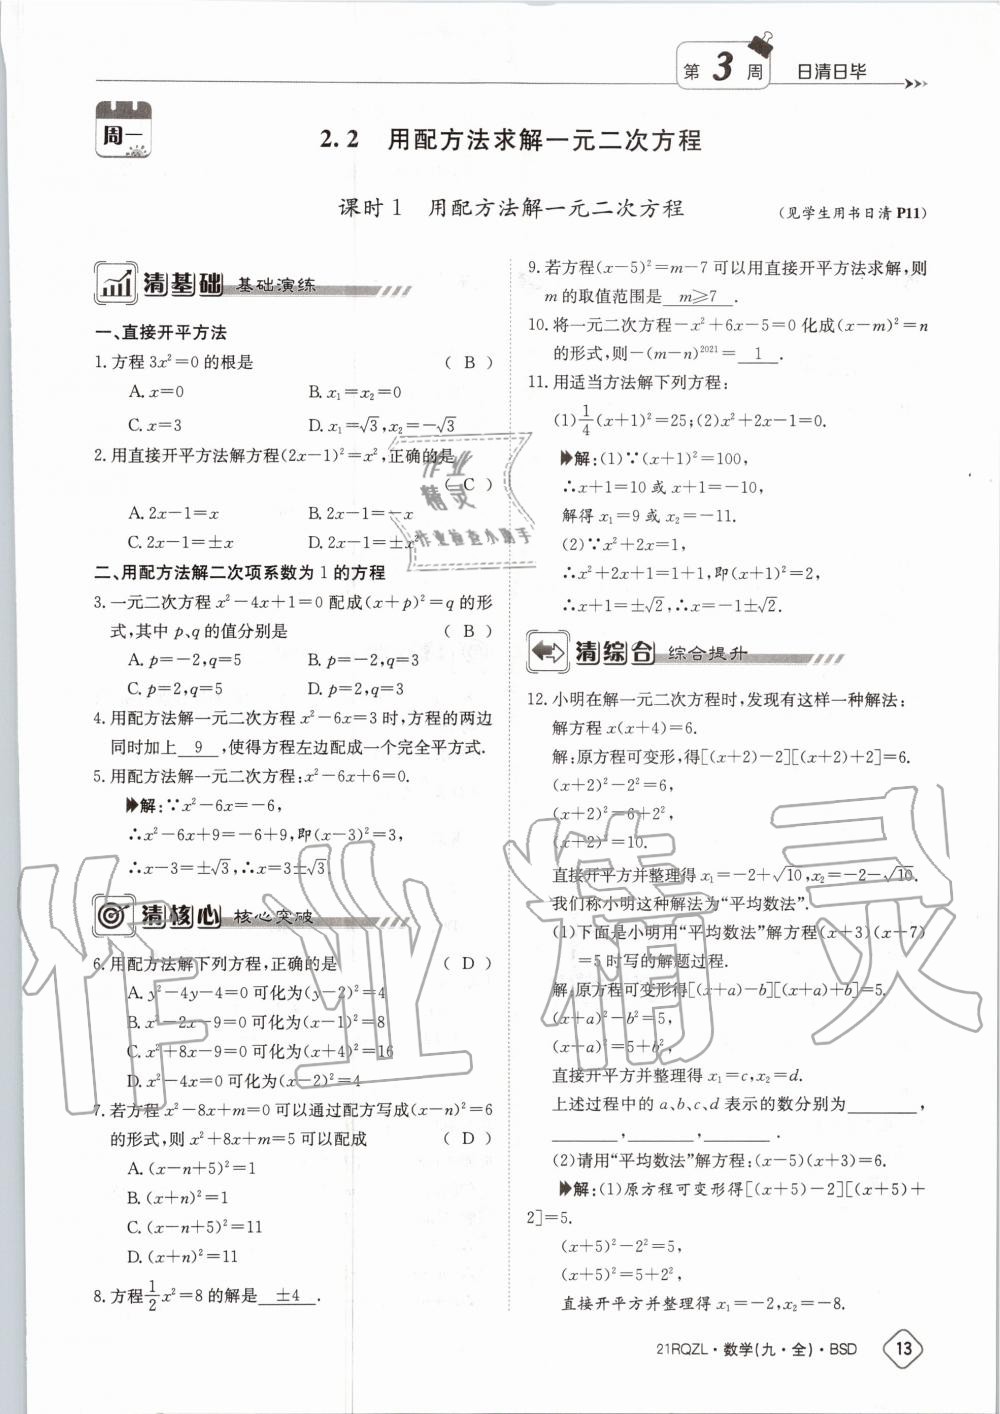 第3周 日清日毕
周一
2.2 用配方法求解一元二次方程
课时1 用配方法解一元二次方程 (见学生用书日清P11)
清基础 基础演练
一、直接开平方法
1.方程3x²=0的根是 ( B )
A.x=0 B.x₁=x₂=0
C.x=3 D.x₁=√3,x₂=-√3
2.用直接开平方法解方程(2x-1)²=x²,正确的是
( C )
A.2x-1=x B.2x-1=-x
C.2x-1=±x D.2x-1=±x²
二、用配方法解二次项系数为1的方程
3.一元二次方程x²-4x+1=0配成(x+p)²=q的形
式,其中p、q的值分别是 ( B )
A.p=-2,q=5 B.p=-2,q=3
C.p=2,q=5 D.p=2,q=3
4.用配方法解一元二次方程x²-6x=3时,方程的两边
同时加上 9 ,使得方程左边配成一个完全平方式.
5.用配方法解一元二次方程:x²-6x+6=0.
解:∵x²-6x=-6,
∴x²-6x+9=-6+9,即(x-3)²=3,
∴x-3=±√3,∴x=3±√3.
清核心 核心突破
6.用配方法解下列方程,正确的是 ( D )
A.y²-4y-4=0可化为(y-2)²=4
B.x²-2x-9=0可化为(x-1)²=8
C.x²+8x-9=0可化为(x+4)²=16
D.x²-4x=0可化为(x-2)²=4
7.若方程x²-8x+m=0可以通过配方写成(x-n)²=6
的形式,则x²+8x+m=5可以配成 ( D )
A.(x-n+5)²=1
B.(x+n)²=1
C.(x-n+5)²=11
D.(x+n)²=11
8.方程1/2x²=8的解是 ±4 .
9.若方程(x-5)²=m-7可以用直接开平方法求解,则
m的取值范围是 m≥7 .
10.将一元二次方程-x²+6x-5=0化成(x-m)²=n
的形式,则-(m-n)²⁰²¹= 1 .
11.用适当方法解下列方程:
(1)1/4(x+1)²=25;(2)x²+2x-1=0.
解:(1)∵(x+1)²=100,
∴x+1=10或x+1=-10,
解得x₁=9或x₂=-11.
(2)∵x²+2x=1,
∴x²+2x+1=1+1,即(x+1)²=2,
∴x+1=±√2,∴x=-1±√2.
清综合 综合提升
12.小明在解一元二次方程时,发现有这样一种解法:
解方程x(x+4)=6.
解:原方程可变形,得[(x+2)-2][(x+2)+2]=6.
(x+2)²-2²=6,
(x+2)²=6+2²,
(x+2)²=10.
直接开平方并整理得x₁=-2+√10,x₂=-2-√10.
我们称小明这种解法为“平均数法”.
(1)下面是小明用“平均数法”解方程(x+3)(x+7)
=5时写的解题过程.
解:原方程可变形得[(x+a)-b][(x+a)+b]=5.
(x+a)²-b²=5,
(x+a)²=5+b²,
直接开平方并整理得x₁=c,x₂=d.
上述过程中的a、b、c、d表示的数分别为________,
________,________,________.
(2)请用“平均数法”解方程:(x-5)(x+3)=6.
解:(1)原方程可变形得[(x+5)-2][(x+5)+
2]=5.
(x+5)²-2²=5,
(x+5)²=5+2²,
直接开平方并整理得x₁=-2,x₂=-8.
21RQZL·数学(九·全)·BSD 13
作业精灵
作业
精灵
作业检查小助手